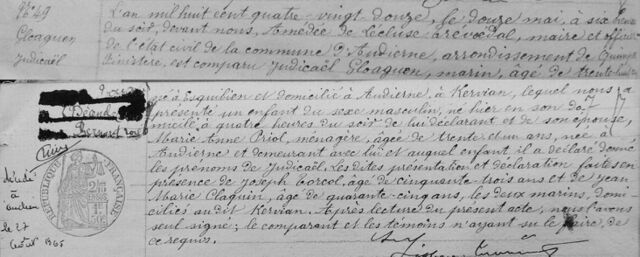 N° 49
Gloaguen
Judicaël
L'an mil huit cent quatre-vingt douze, le douze mai, à six heures
du soir, devant nous, Amédée de Lécluse à révéal, maire et officier
de l'état civil de la commune d'Audierne, arrondissement de Quimper
Finistère, est comparu Judicaël Gloaguen, marin, âgé de trente
né à Esquibien et domicilié à Audierne, à Kervian, lequel nous a
présenté un enfant du sexe masculin, né hier en son do-
micile, à quatre heures du soir de lui déclarant et de son épouse,
Marie Anne Priol, ménagère, âgée de trente et un ans, née à
Audierne et demeurant avec lui et auquel enfant il a déclaré donné
les prénoms de Judicaël. Les dites présentation et déclaration faites en
présence de Joseph Corcol, âgé de cinquante trois ans et de Jean
Marie Claquin, âgé de quarante cinq ans, les deux marins, domi
ciliés audit Kervian. Après lecture du présent acte, nous l'avons
seul signé; le comparant et les témoins n'ayant su le faire, de
ce requis.
RÉPUBLIQUE FRANÇAISE
décédé
à
le 27
1965